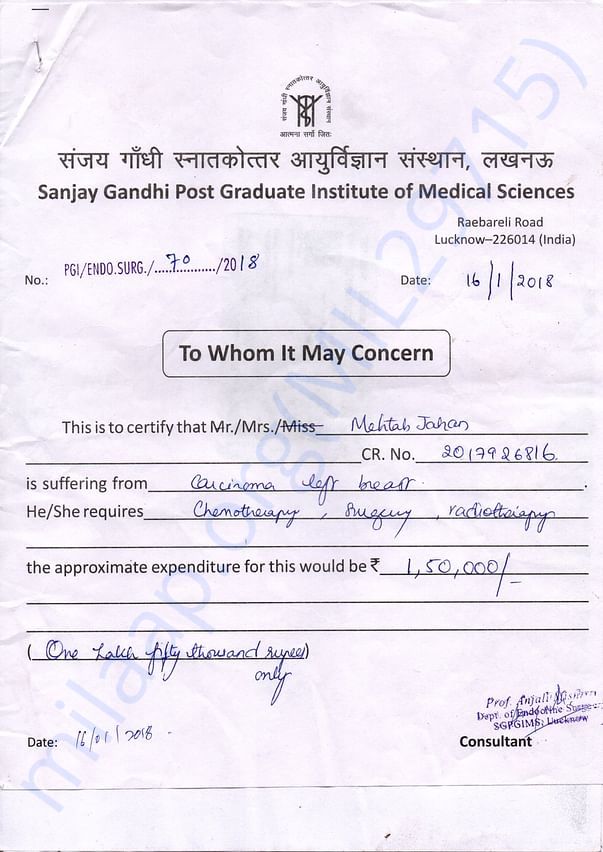 संजय गाँधी स्नातकोत्तर आयुर्विज्ञान संस्थान
आत्मना सर्गो जितः
संजय गाँधी स्नातकोत्तर आयुर्विज्ञान संस्थान, लखनऊ
Sanjay Gandhi Post Graduate Institute of Medical Sciences
Raebareli Road
Lucknow–226014 (India)
No.: PGI/ENDO.SURG./.....70............/2018 Date: 16/1/2018
To Whom It May Concern
This is to certify that Mr./Mrs./Miss Mehtab Jahan
CR. No. 2017926816
is suffering from Carcinoma left breast.
He/She requires Chemotherapy, Surgery, radiotherapy
the approximate expenditure for this would be ₹ 1,50,000/-
(One Lakh fifty thousand rupees)
only
Prof. Anjali
Dept. of Endocrine
SGPGIMS, Lucknow
Date: 16/01/2018. Consultant
milaap.org(MIL29715)